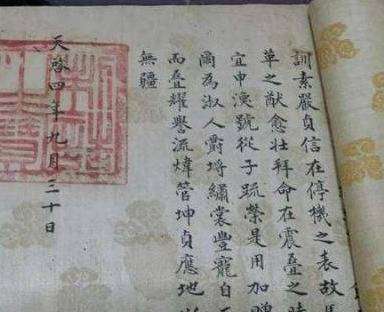 訓素嚴貞信在停機之表故馬
革之猷愈壯拜命在震叠之時
宜申渙號從子疏榮是用加贈
爾為淑人爵埒繡裳豐寵自
而叠耀譽流煒管坤貞應地
無疆
天啟四年九月三十日